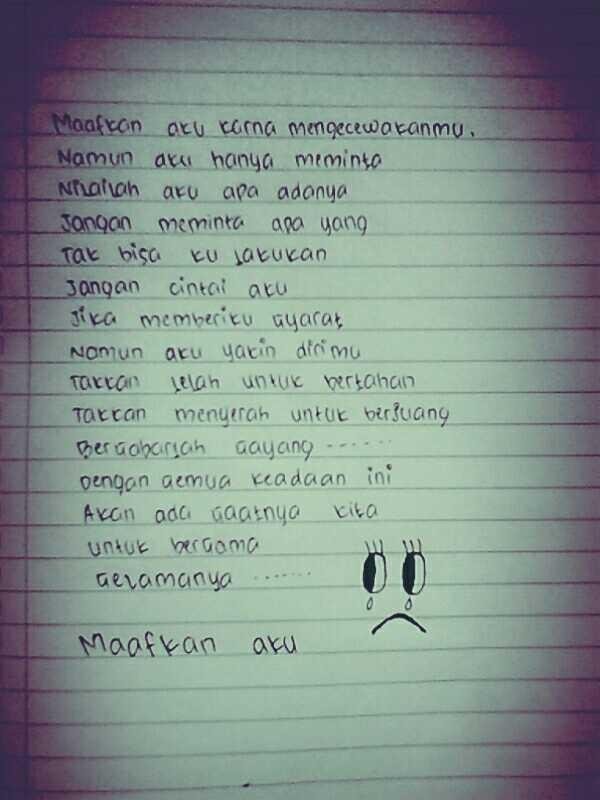 Maafkan aku karna mengecewakanmu.
Namun aku hanya meminta
Nilailah aku apa adanya
Jangan meminta apa yang
Tak bisa ku lakukan
Jangan cintai aku
Jika memberiku syarat
Namun aku yakin dirimu
Takkan lelah untuk bertahan
Takkan menyerah untuk berjuang
Bersabarlah sayang ......
Dengan semua keadaan ini
Akan ada saatnya kita
untuk bersama
selamanya .......
Maafkan aku